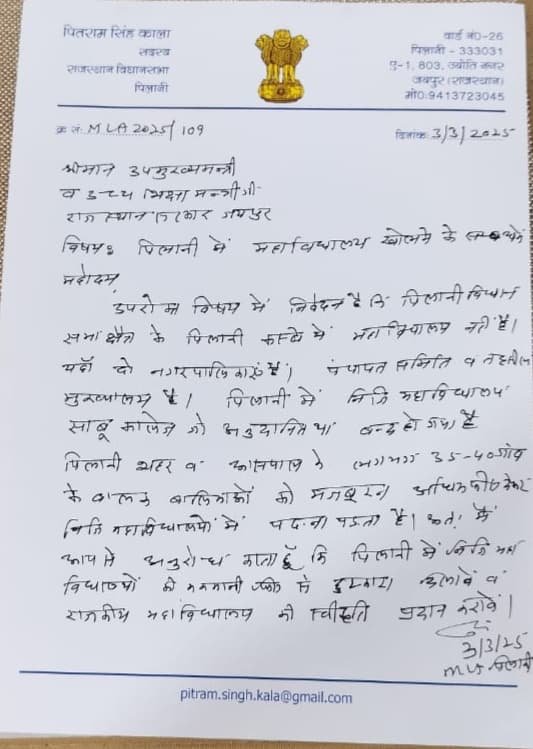 पितराम सिंह काला
सदस्य
राजस्थान विधानसभा
पिलानी
वार्ड नं0-26
पिलानी - 333031
ए-1, 803, ज्योति नगर
जयपुर (राजस्थान)
मो0:9413723045
क्र सं: MLA 2025/109
दिनांक 3/3/2025
श्रीमान उपमुख्यमन्त्री
व उच्च शिक्षा मन्त्री जी
राजस्थान सरकार जयपुर
विषयः पिलानी में महाविद्यालय खोलने के सम्बन्ध में
महोदय,
उपरोक्त विषय में निवेदन है कि पिलानी विधान
सभा क्षेत्र के पिलानी कस्बे में महाविद्यालय नहीं है।
यहाँ दो नगरपालिकाएं है। पंचायत समिति व तहसील
मुख्यालय है। पिलानी में निजि महाविद्यालय
साबू कालेज जो अनुदानित था बन्द हो गया है
पिलानी शहर व आसपास के लगभग 35-40 गांव
के बालक बालिकाओं को मजबूरन अधिक फीस देकर
निजि महाविद्यालयों में पढना पडता है। अतः मैं
आप से अनुरोध करता हूँ कि पिलानी में निजि महा
विद्यालयों की मनमानी फीस से छुटकारा दिलावें व
राजकीय महाविद्यालय की स्वीकृति प्रदान करावें।
3/3/25
MLA पिलानी
pitram.singh.kala@gmail.com